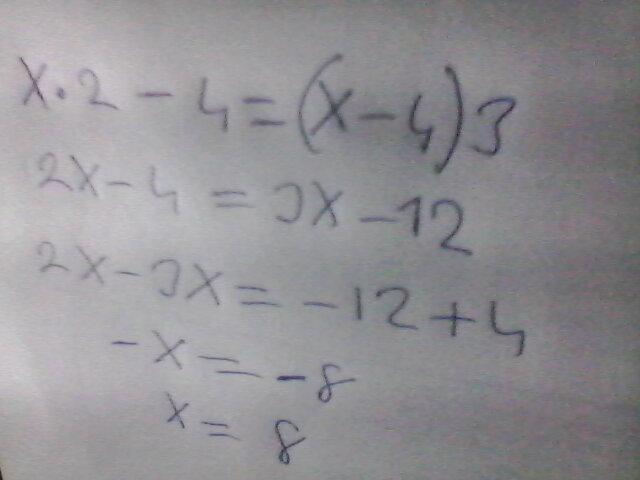 x·2-4=(x-4)3
2x-4=3x-12
2x-3x=-12+4
-x=-8
x=8